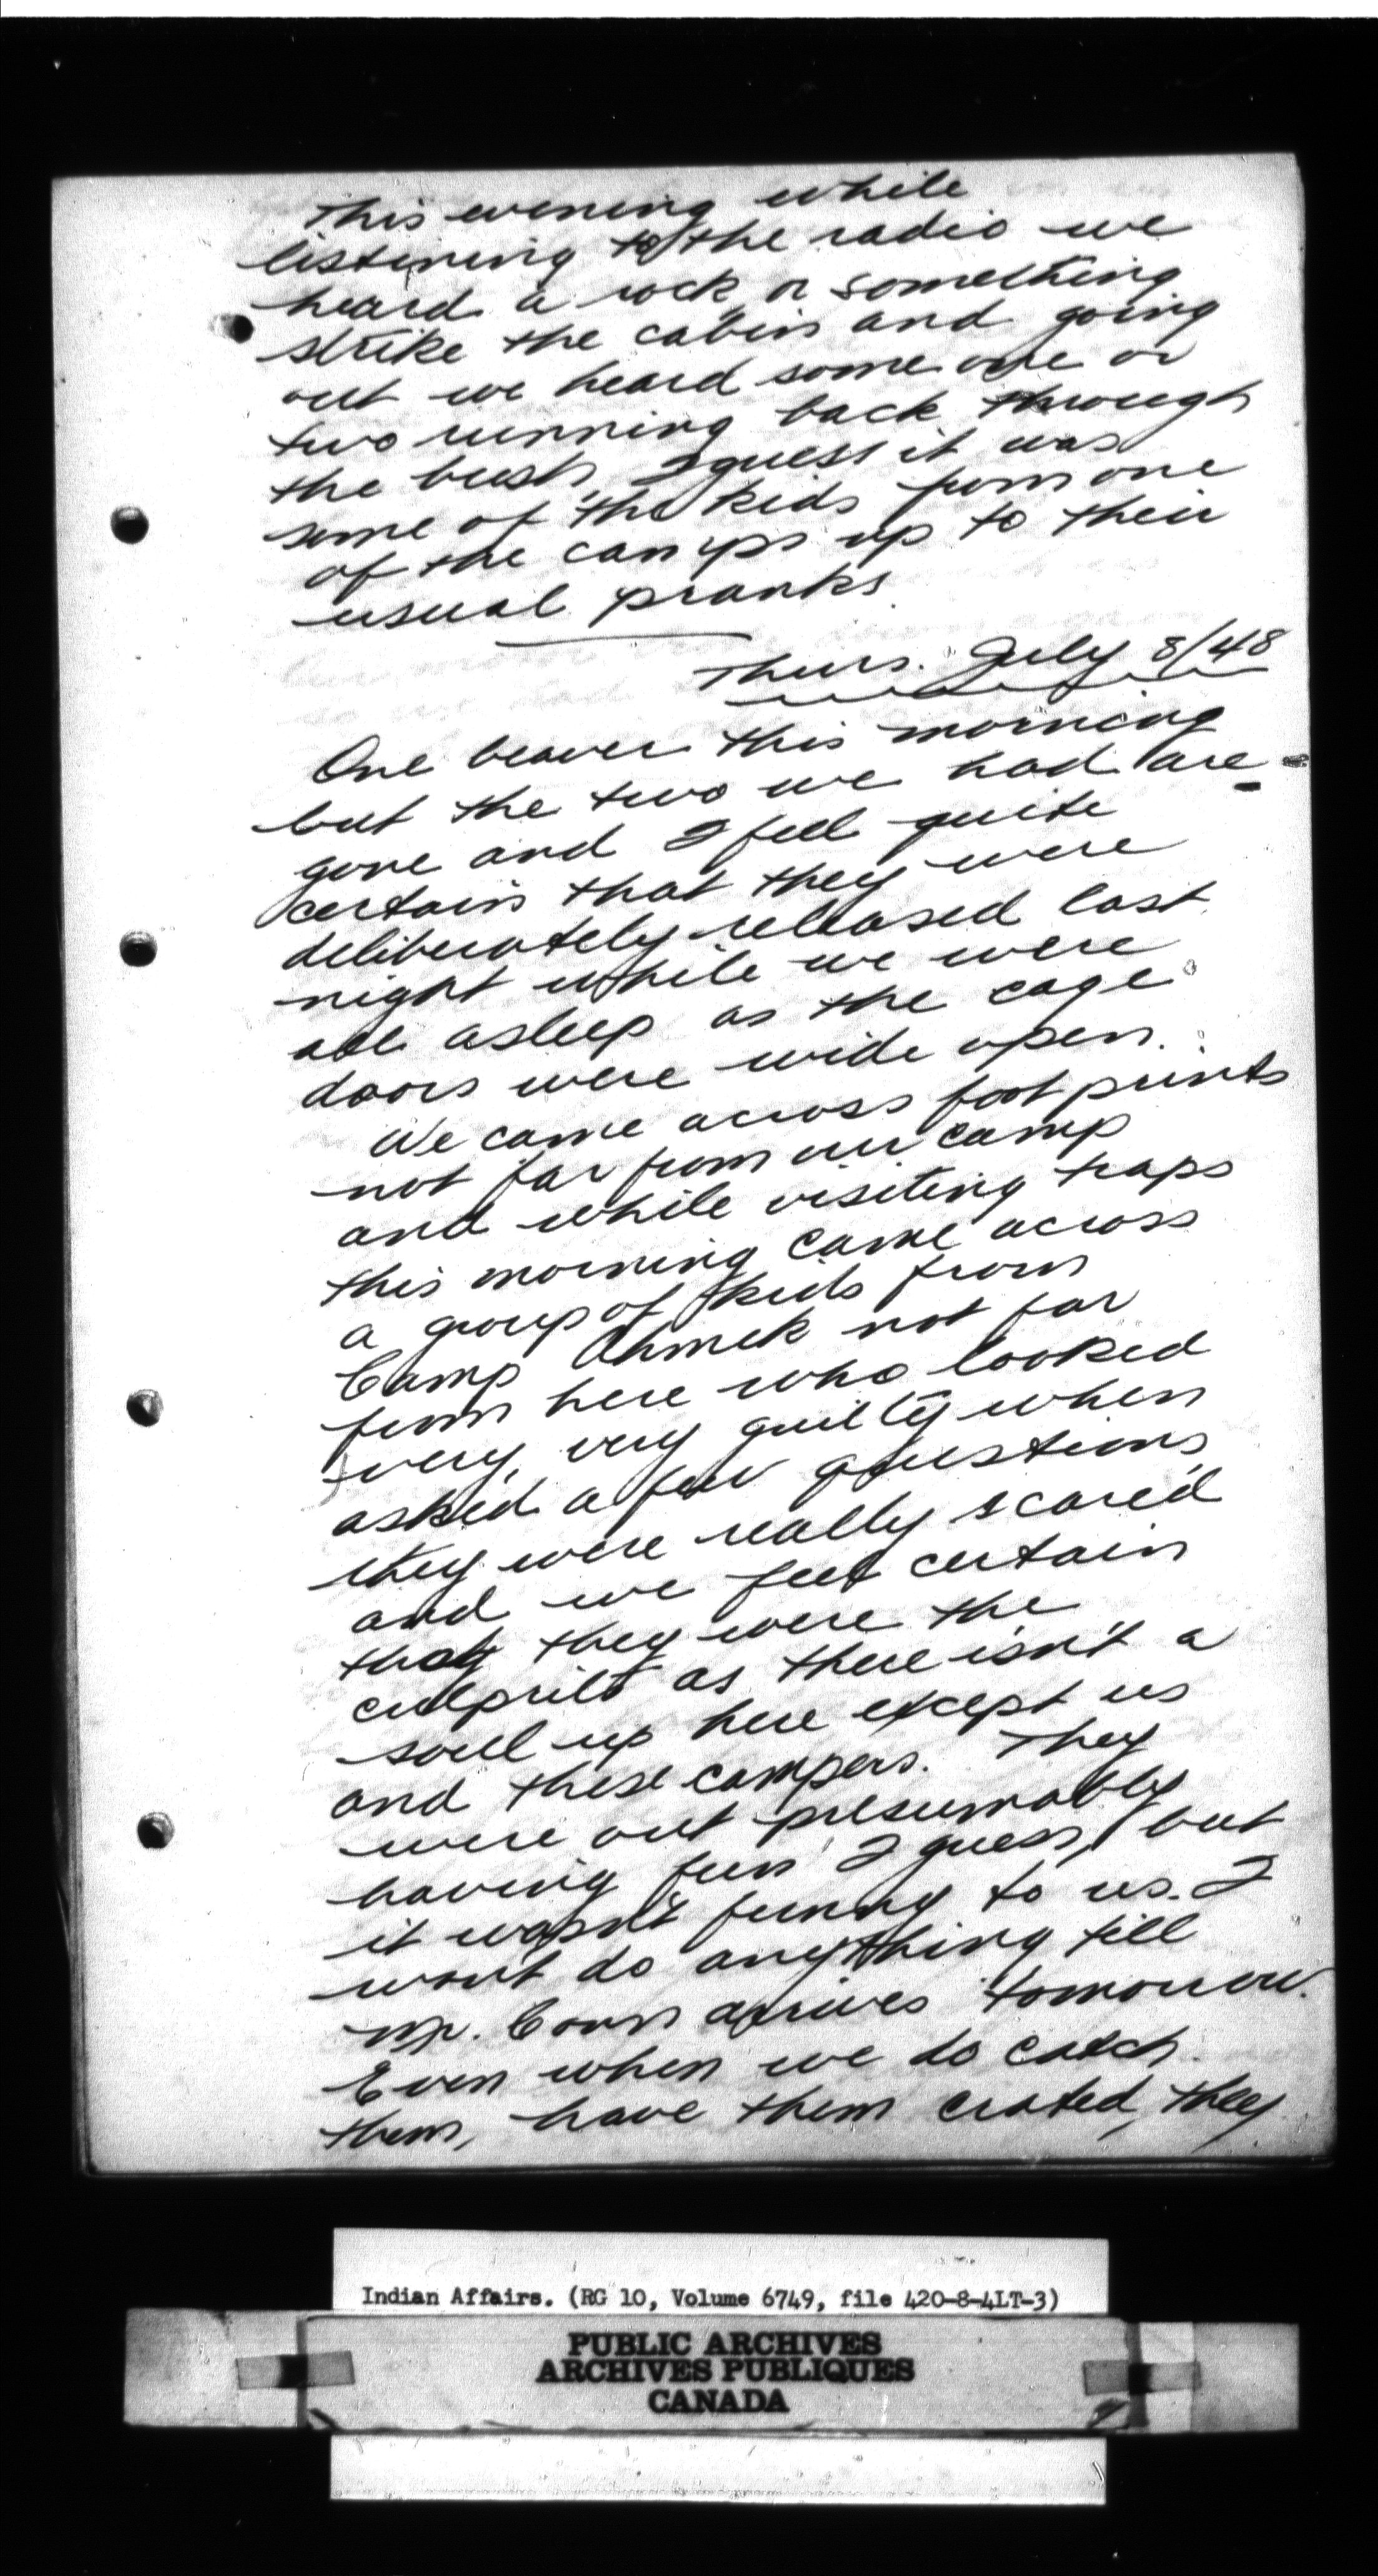 This evening while
listening to the radio we
heard a rock or something
strike the cabin and going
out we heard some one or
two running back through
the bush, I guess it was
some of the kids from one
of the camps up to their
usual pranks
Thurs. July 8/48
One beaver this morning
but the two we had are
gone and I feel quite
certain that they were
deliberately released last
night while we were
all asleep as the cage
doors were wide open.
We came across foot prints
not far from our camp
and while visiting traps
this morning came across
a group of kids from
Camp Ahmek not far
from here who looked
very, very guilty when
asked a few questions,
they were really scared
and we feel certain
that they were the
culprits as there isn't a
soul up here except us
and these campers. They
were out presumably
having fun I guess, but
it wasn't funny to us. I
won't do anything till
Mr. Conn arrives tomorrow.
Even when we do catch
them, have them crated, they
Indian Affairs. (RG 10, Volume 6749, file 420-8-4LT-3)
PUBLIC ARCHIVES
ARCHIVES PUBLIQUES
CANADA